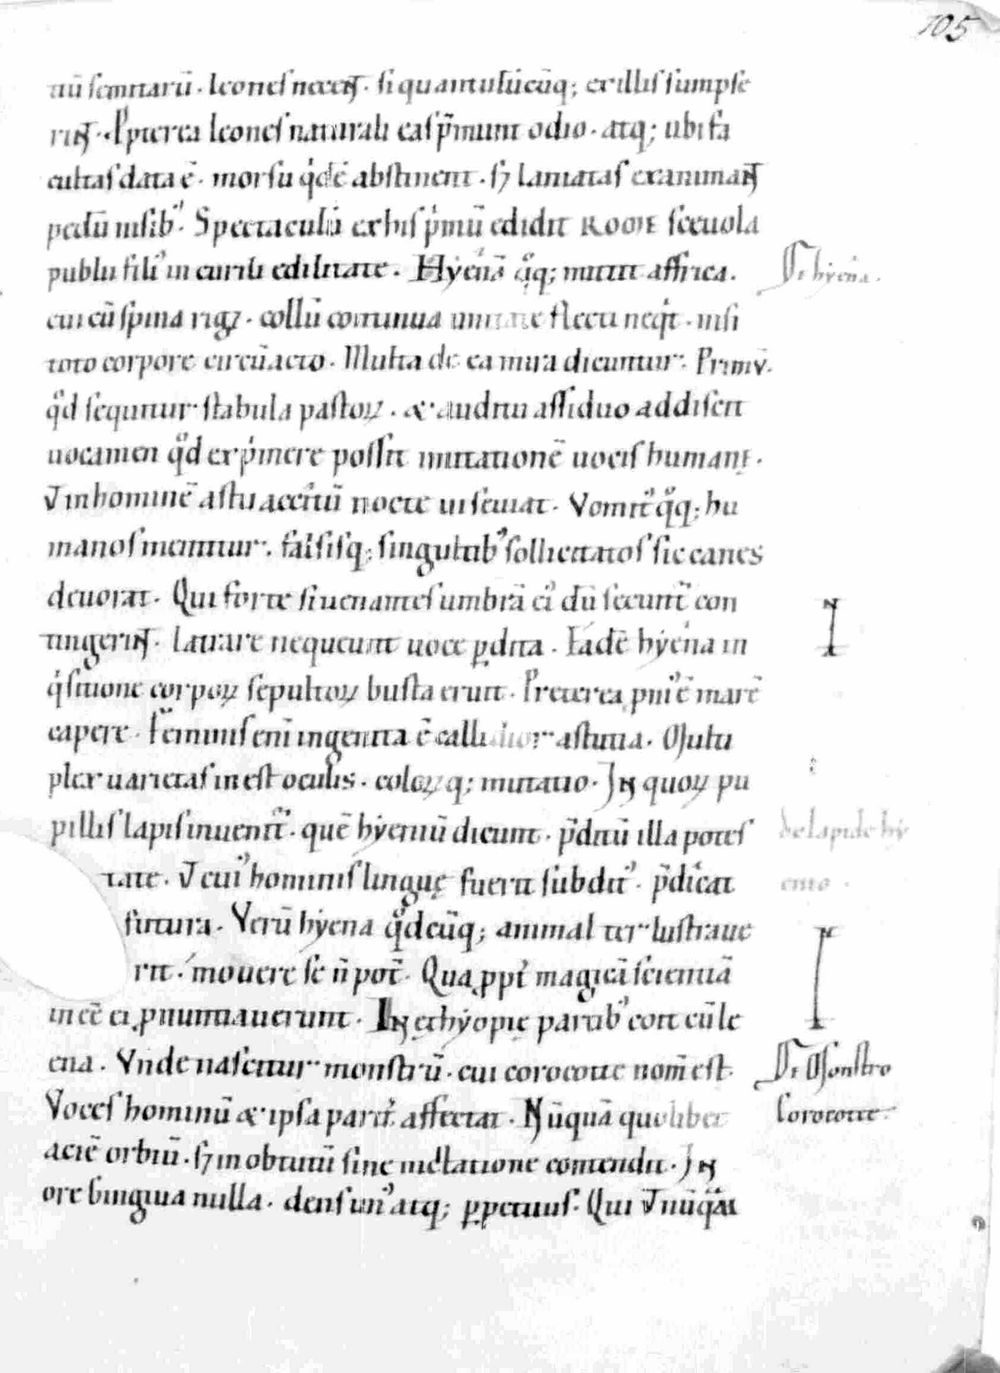 105
nū semitarū . leones necent . si quantulūcūq; ex illis sumpse
rint . Ppterea leones naturali eas p̄munt odio . atq; ubi fa
cultas data ē . morsu q̇dē abstinent . sꝫ laniatas exanimant
pedū nisib᾿ . Spectaculū ex his p̓mū edidit ROOΕ scęuola
publii fili᾿ in curili edilitate . Hyenā q̊q; mittit affrica .
De hyena .
cui cū spina riget . collū continua unitate flecti neq̇t . nisi
toto corpore circūacto . Multa de ea mira dicuntur . Primū .
q̊d sequitur stabula pastoꝝ . & auditu assiduo addiscit
uocamen q̊d exp̓mere possit imitationē uocis humanę .
Ut in hominē astu accitū nocte ut seuiat . Vomit᾿ q̊q; hu
manos mentitur . falsisq; singultib᾿ sollicitatos sic canes
deuorat . Qui forte si uenantes umbrā ei᾿ dū secunt᾿ con
tingerint . latrare nequeunt uoce ꝑdita . Eadē hyena in
q̇sitione corpoꝝ sepultoꝝ busta eruit . Preterea pni᾿ ē marē
capere . Feminis eni ingenita ē callidior astutia . Multi
plex uarietas inest oculis . coloꝝq; mutatio . In quoꝝ pu
pillis lapis inuenit᾿ . quē hyeniū dicunt . p̄ditū illa potes
de lapide hy
tate . Ut cui᾿ hominis linguę fuerit subdit᾿ . p̄dicat
enio .
futura . Verū hyena q̊dcūq; animal ter lustraue
rit . mouere se n̄ pot̄ . Qua ꝓpt᾿ magicā scientiā
in eē ei ꝓnuntiauerunt . In ęthyopię partib᾿ coit cū le
ena . Vnde nascitur monstrū . cui corocotte nom̄ est .
De Monstro
Voces hominū & ipsa parit᾿ affectat . Nūquā quolibet
Corocotte .
aciē orbiū . sꝫ in obtutū sine nictatione contendit . In
ore gingiua nulla . dens un᾿ atq; ꝑpetuus . Qui ut nūq̄ā